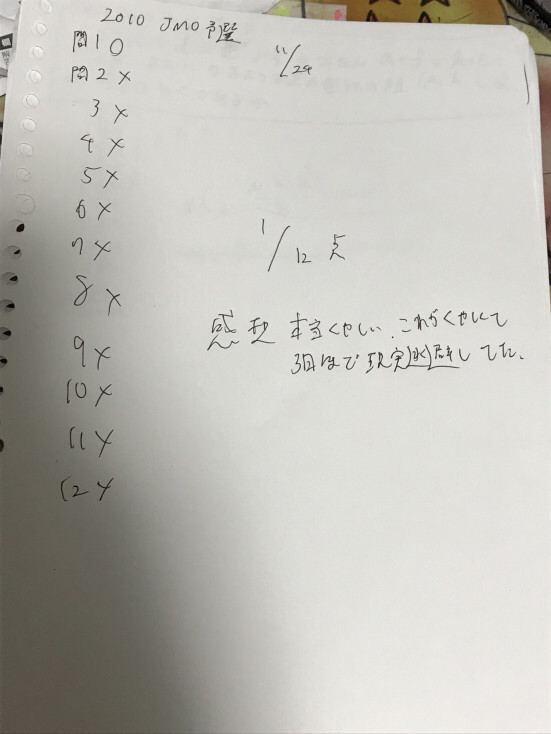 2010 JMO予選
11/29
問1 ○
問2 ×
3 ×
4 ×
5 ×
6 ×
7 ×
8 ×
9 ×
10 ×
11 ×
12 ×
1/12 点
感想 本当くやしい。これがくやしくて
3日ほど現実逃避してた。